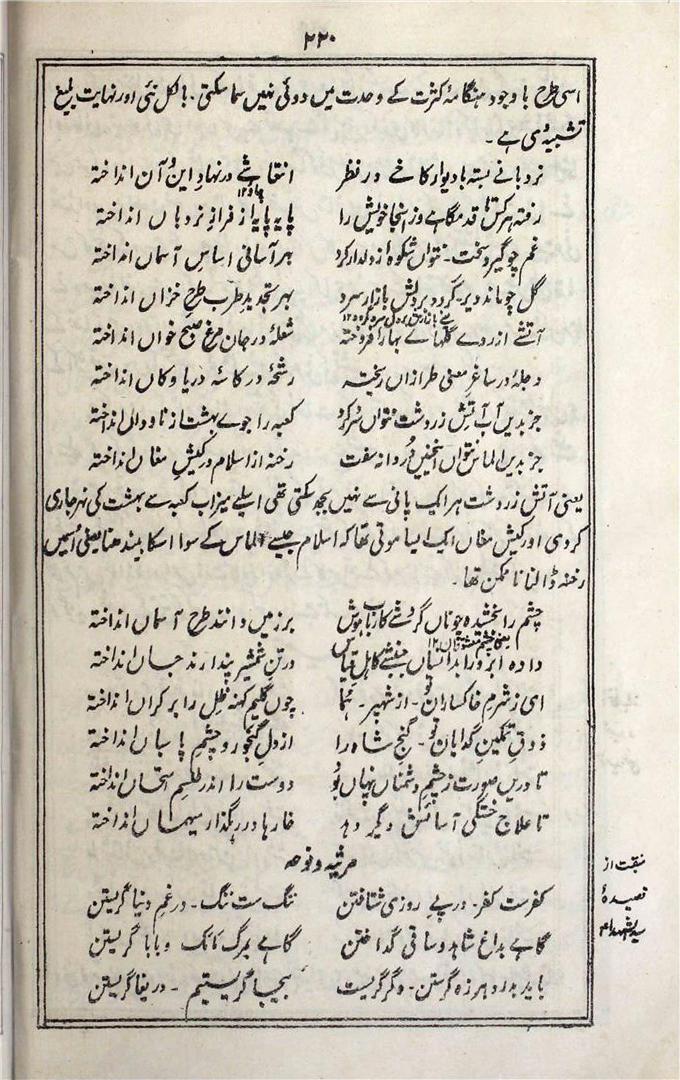 ۲۲۰
اسی طرح باوجود ہنگامۂ کثرت کے وحدت میں دوئی نہیں سما سکتی۔ بالکل نئی اور نہایت بلیغ
تشبیہ دی ہے۔
نردبانے بستہ با دیوار کاخے در نظر انتقاشے در نہاد این و آن انداختہ
رفتہ ہر کس تا قدمگاہے وزانجا خویش را پایہ پایہ از فراز نردباں انداختہ
غم چو گیرد سخت۔ نتواں شکوہ از دلدار کرد بہر آسانی اساس آسماں انداختہ
گل چو ماند دیر۔ گردد بر دلش بازار سرد بہر تجدید طرب طرح خزاں انداختہ
آتشے از روے گلہاے بہار افروختہ شعلہ در جان مرغ صبح خواں انداختہ
دجلہ در ساغر معنی طرازاں ریختہ رشحۂ در کاسۂ دریا و کاں انداختہ
جز بدیں آب آتش زردشت نتواں سرد کرد کعبہ را جوے بہشت از ناودانی انداختہ
جز بدیں الماس نتواں اینچنیں در دانہ سفت رخنہ از اسلام در کیش مغاں انداختہ
یعنی آتش زردشت ہر ایک پانی سے نہیں بجھ سکتی تھی اسلیے میزاب کعبہ سے بہشت کی نہر جاری
کر دی اور کیش مغاں ایک ایسا موتی تھا کہ اسلام جیسے الماس کے سوا اسکا بیندھنا یعنی اُسمیں
رخنہ ڈالنا ناممکن تھا۔
چشم را بخشیدہ چوناں گردشے کارباب ہوش بر زمیں دانند طرح آسماں انداختہ
دادہ ابرو را بدانساں جنبشے کاہل قیاس در تن شمشیر پندارند جاں انداختہ
ای ز شرم خاکساران تو۔ از شہپر۔ ہما چوں گلیم کہنہ ظل را بر کراں انداختہ
ذوق تمکین گدایان تو۔ گنج شاہ را از دل گنجور و چشم پاسباں انداختہ
تا دریں صورت ز چشم دشمناں پنہاں بُوَد دوست را اندر طلسم امتحاں انداختہ
تا علاج خستگی آسایش دیگر دہد خارہا در رہگذار میہماں انداختہ
مرثیہ و نوحہ
منقبت از
قصیدۂ
سید الشہدا ع
کفرست کفر۔ در پے روزی شتافتن ننگ ست ننگ۔ در غم دنیا گریستن
گاہے بداغ شاہد و ساقی گداختن گاہے بمرگ مانک و بابا گریستن
باید بدرد ہرزہ گرستن۔ وگر گریست بیجا گریستیم۔ دریغا گریستن